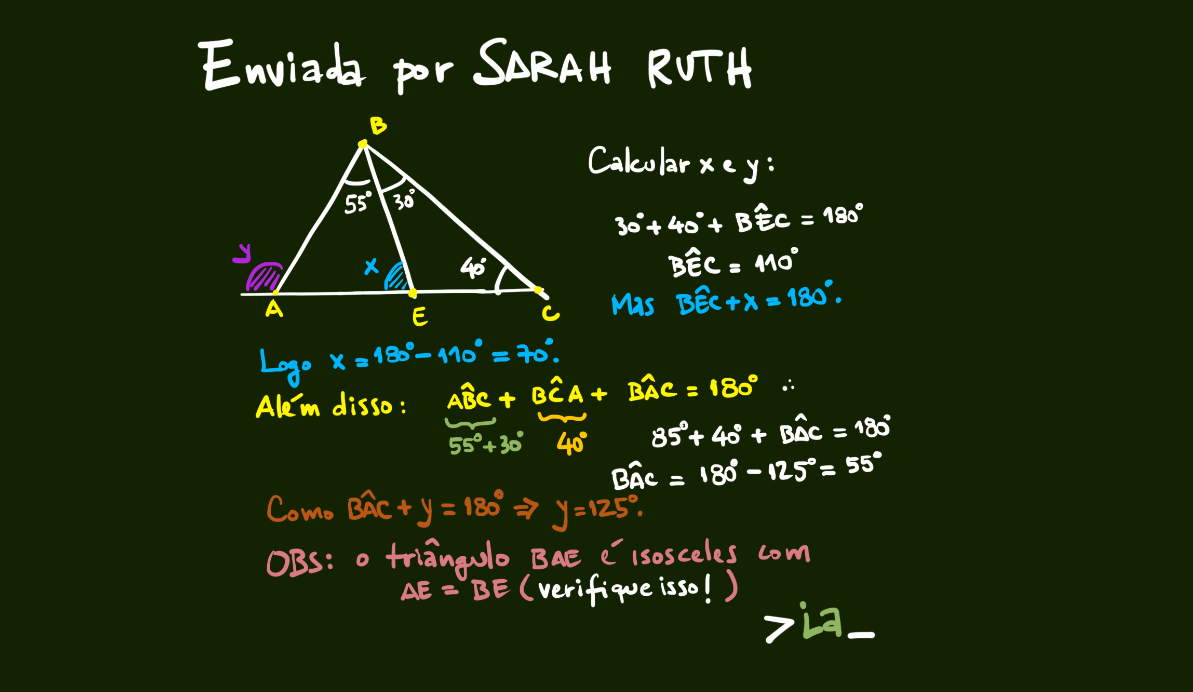 Enviada por SARAH RUTH
B
Calcular x e y:
55° 30°
30° + 40° + BÊC = 180°
y
x
40°
BÊC = 110°
A
E
C
Mas BÊC + x = 180°.
Logo x = 180° - 110° = 70°.
Além disso: AB̂C + BĈA + BÂC = 180° ∴
55° + 30°
40°
85° + 40° + BÂC = 180°
BÂC = 180° - 125° = 55°
Como BÂC + y = 180° ⇒ y = 125°.
OBS: o triângulo BAE é isosceles com
AE = BE (verifique isso!)
>ia_